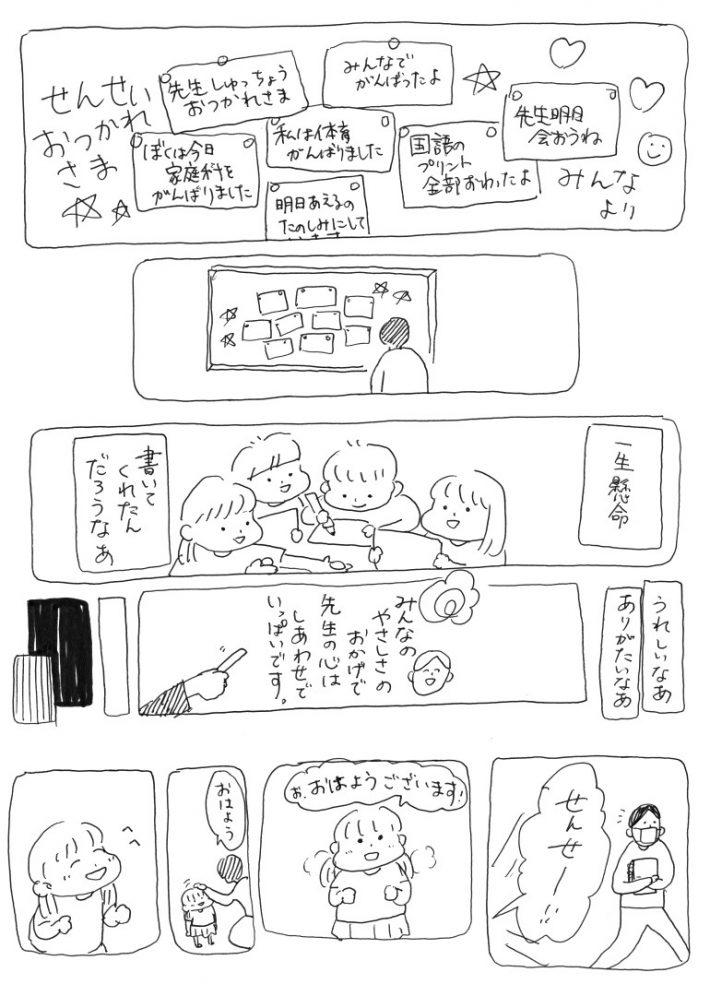 せんせい
おつかれ
さま
先生しゅっちょう
おつかれさま
みんなで
がんばったよ
ぼくは今日
家庭科を
がんばりました
私は体育
がんばりました
明日あえるの
たのしみにして
国語の
プリント
全部おわったよ
先生明日
会おうね
みんな
より
一生懸命
書いて
くれたん
だろうなあ
うれしいなあ
ありがたいなあ
みんなの
やさしさの
おかげで
先生の心は
しあわせで
いっぱいです。
せんせー!!
お、おはようございます!
おはよう